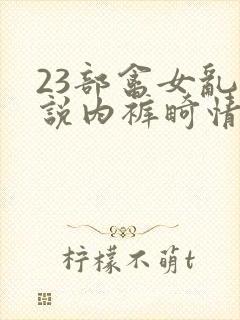 23部畜女乱
説内裤畸情
柠檬不萌t